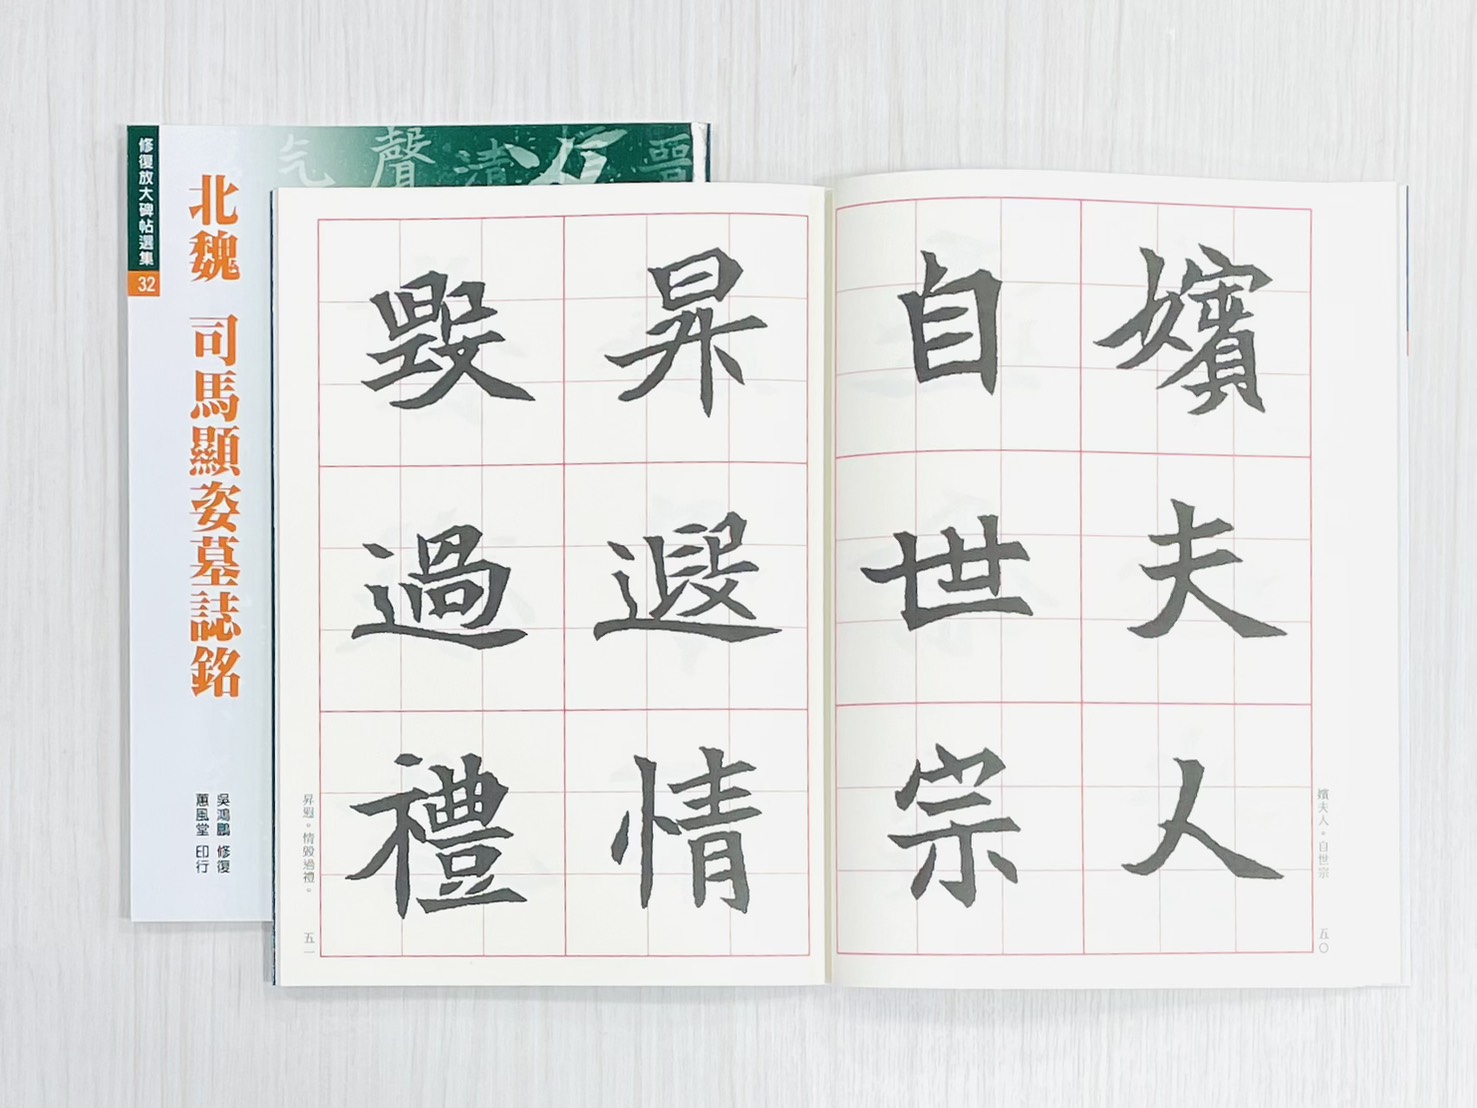 修復放大碑帖選集
32
北魏 司馬顯姿墓誌銘
吳鴻鵬 修復
蕙風堂 印行
聲
清
嬪夫人
自世宗
昇遐情
毀過禮
嬪夫人。自世宗
五〇
昇遐。情毀過禮。
五一